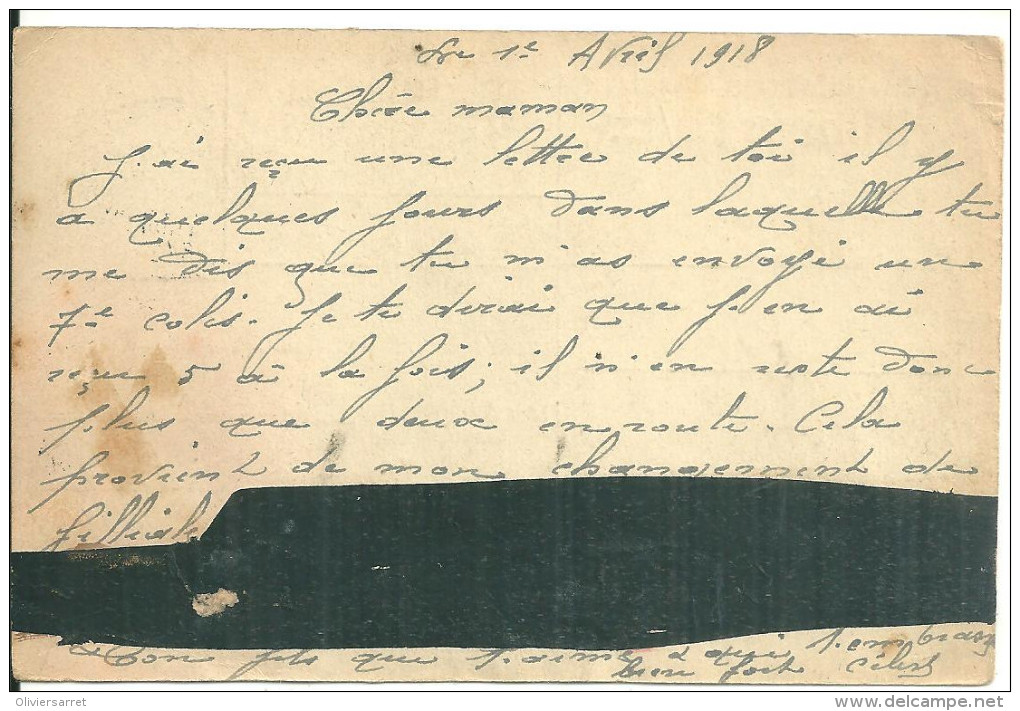 Le 1e Avril 1918
Chère maman
J'ai reçu une lettre de toi il y
a quelques jours dans laquelle tu
me dis que tu m'as envoyé un
7e colis. Je te dirai que j'en ai
reçu 5 à la fois; il n'en reste donc
plus que deux en route. Cela
provient de mon changement de
filliale
Ton fils que t'aime & qui t'embrasse
bien fort
Oliviersarret
delcampe.net